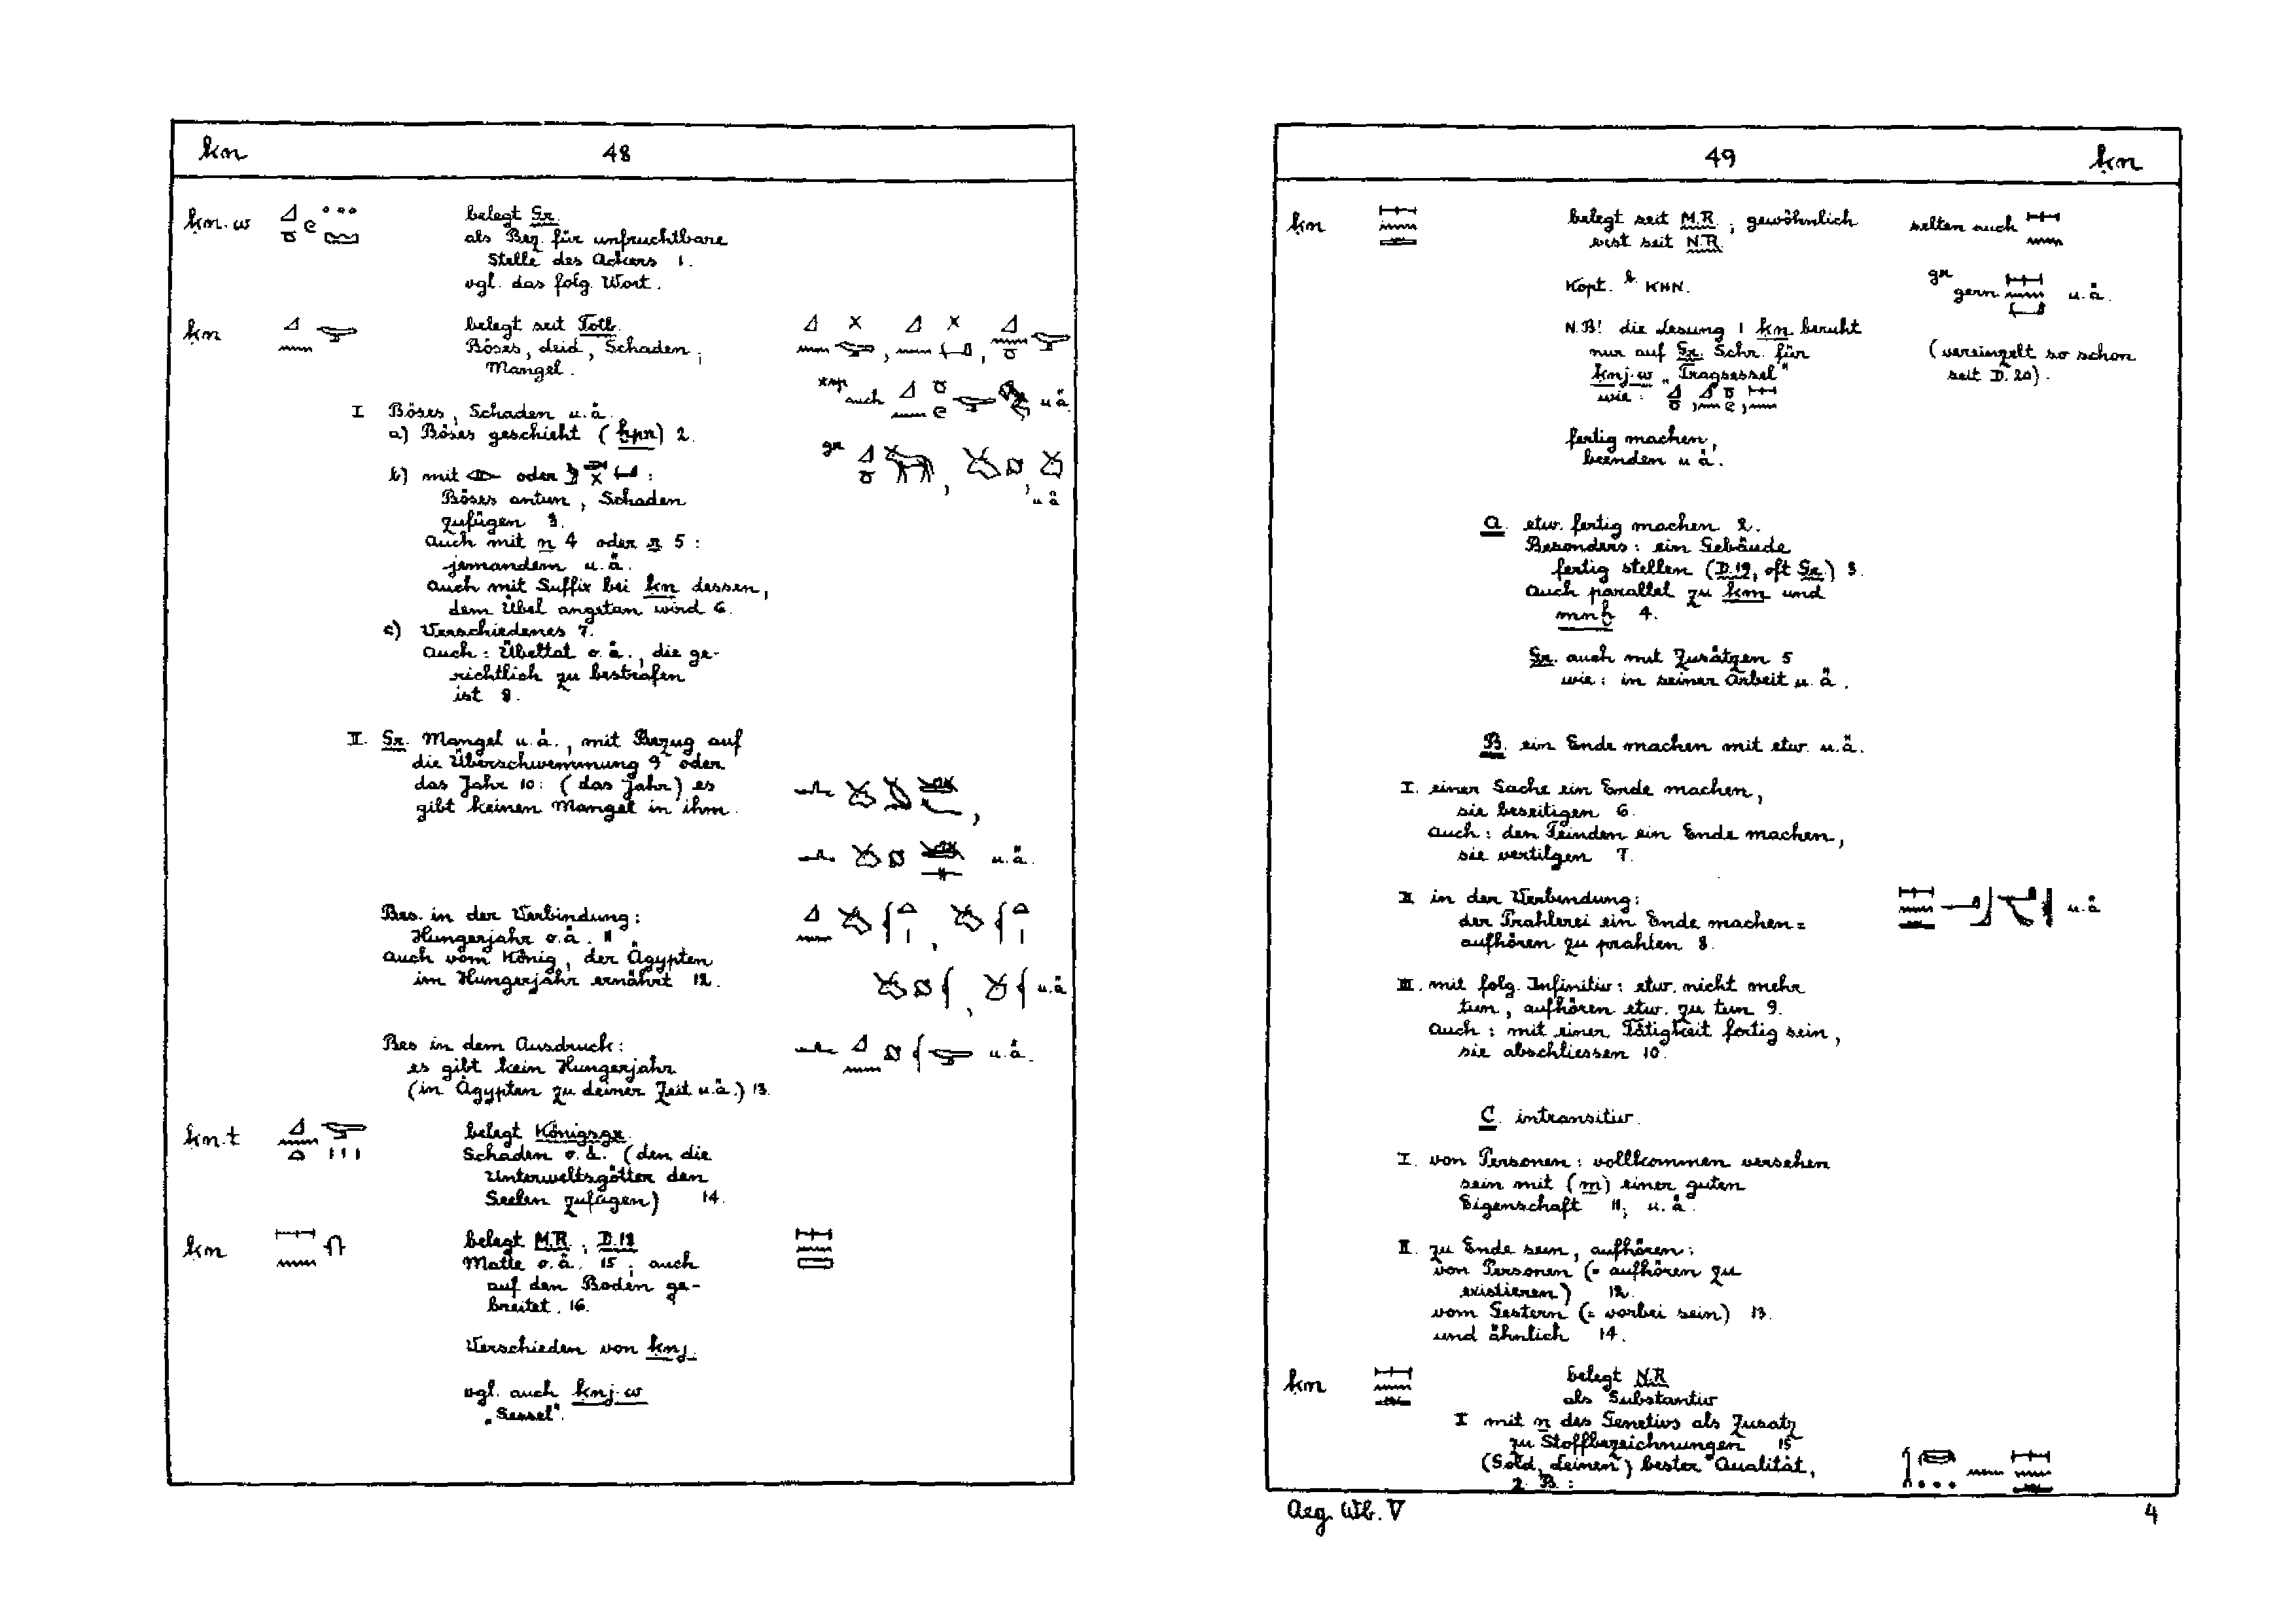 ḳn 48
ḳn.w belegt Gr.
als Bez. für unfruchtbare
Stelle des Ackers 1.
vgl. das folg. Wort.
ḳn belegt seit Totb.
Böses, Leid, Schaden;
Mangel.
auch u.ä.
I Böses, Schaden u.ä.
a) Böses geschieht (ḫpr) 2.
gr
b) mit oder :
Böses antun, Schaden
zufügen 3.
u.ä
Auch mit n 4 oder r 5 :
jemandem u.ä.
Auch mit Suffix bei ḳn dessen,
dem Übel angetan wird 6.
c) Verschiedenes 7.
Auch: Übeltat o.ä., die ge-
richtlich zu bestrafen
ist 8.
II. Gr. Mangel u.ä., mit Bezug auf
die Überschwemmung 9 oder
das Jahr 10: (das Jahr) es
gibt keinen Mangel in ihm.
u.ä.
Bes. in der Verbindung:
Hungerjahr o.ä. 11
Auch vom König, der Ägypten
im Hungerjahr ernährt 12.
u.ä
Bes in dem Ausdruck:
es gibt kein Hungerjahr
(in Ägypten zu deiner Zeit u.ä.) 13.
u.ä.
ḳn.t belegt Königsgr.
Schaden o.ä. (den die
Unterweltsgötter den
Seelen zufügen) 14.
ḳn belegt M.R.; D.18
Matte o.ä. 15; auch
auf den Boden ge-
breitet. 16.
Verschieden von ḳnj.
vgl. auch ḳnj.w
„Sessel".
49 ḳn
ḳn belegt seit M.R.; gewöhnlich
erst seit N.R.
selten auch
Kopt. b. KHN.
gr gern u.ä.
N.B! die Lesung 1 ḳn beruht
nur auf Gr. Schr. für
ḳnj.w „Tragsessel"
wie:
(vereinzelt so schon
seit D.20).
fertig machen,
beenden u.ä.
A. etw. fertig machen 2.
Besonders: ein Gebäude
fertig stellen (D.19, oft Gr.) 3.
Auch parallel zu km und
mnḫ 4.
Gr. auch mit Zusätzen 5
wie: in seiner Arbeit u.ä.
B. ein Ende machen mit etw. u.ä.
I. einer Sache ein Ende machen,
sie beseitigen 6.
Auch: den Feinden ein Ende machen,
sie vertilgen 7.
II in der Verbindung:
der Prahlerei ein Ende machen =
aufhören zu prahlen 8.
u.ä
III. mit folg. Infinitiv: etw. nicht mehr
tun, aufhören etw. zu tun 9.
Auch: mit einer Tätigkeit fertig sein,
sie abschliessen 10.
C. intransitiv.
I. von Personen: vollkommen versehen
sein mit (m) einer guten
Eigenschaft 11; u.ä.
II. zu Ende sein, aufhören:
von Personen (= aufhören zu
existieren) 12.
vom Gestern (= vorbei sein) 13.
und ähnlich 14.
ḳn belegt N.R
als Substantiv
I mit n des Genetivs als Zusatz
zu Stoffbezeichnungen 15
(Gold, Leinen) bester Qualität,
z.B.:
Aeg. Wb. V 4